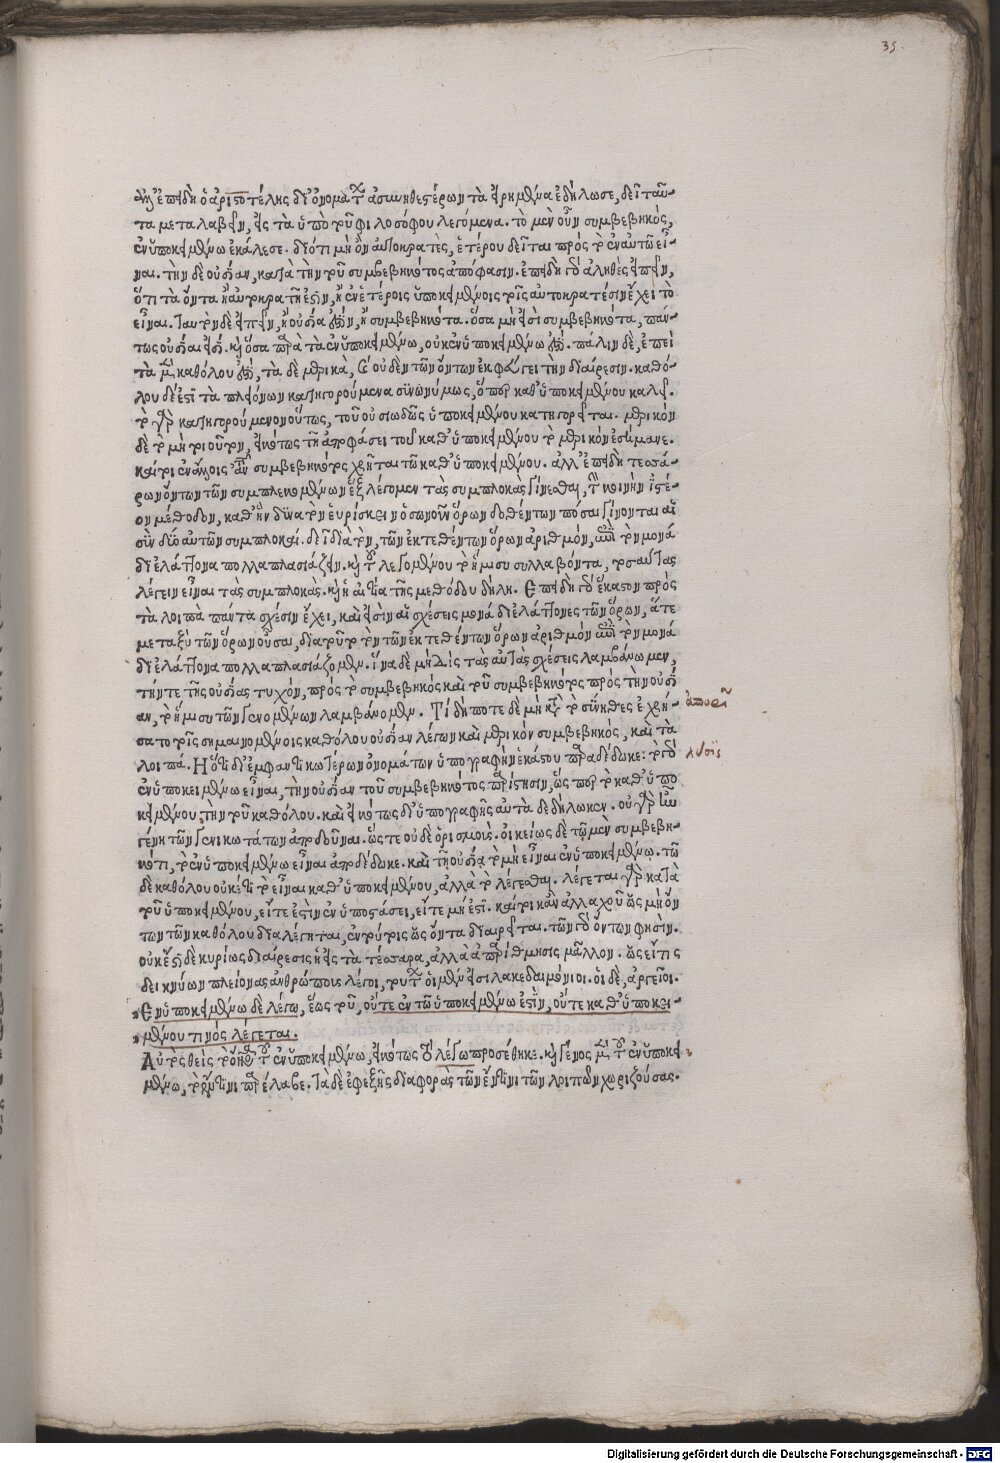 35.
ἀλλ' ἐπειδὴ ὁ ἀριστοτέλης δι' ὀνομάτων ἀσυνηθεστέρων τὰ εἰρημένα ἐδήλωσε, δεῖ ταῦ-
τα μεταλαβεῖν, εἰς τὰ ὑπὸ τοῦ φιλοσόφου λεγόμενα. τὸ μὲν οὖν συμβεβηκός,
ἐν ὑποκειμένω ἐκάλεσε. διότι μὴ ὂν αὐτοκρατὲς, ἑτέρου δεῖται πρὸς τὸ ἐν αὐτῶ εἶ-
ναι. τὴν δὲ οὐσίαν, κατὰ τὴν τοῦ συμβεβηκότος ἀπόφασιν. ἐπειδὴ γὰρ ἀληθὲς εἰπεῖν,
ὅτι τὰ ὄντα ἢ αὐτοκρατῆ ἐστὶν, ἢ ἐν ἑτέροις ὑποκειμένοις τοῖς αὐτοκρατέσιν ἔχει τὸ
εἶναι. ταυτὸν δὲ εἰπεῖν, ἢ οὐσία εἶναι, ἢ συμβεβηκότα. ὅσα μὴ εἰσὶ συμβεβηκότα, πάν-
τως οὐσίαι εἰσί. καὶ ὅσα παρὰ τὰ ἐν ὑποκειμένω, οὐκ ἐν ὑποκειμένω εἰσί. πάλιν δὲ, ἐπεὶ
τὰ μὲν καθόλου εἰσί, τὰ δὲ μερικὰ, καὶ οὐδὲν τῶν ὄντων ἐκφεύγει τὴν διαίρεσιν. καθό-
λου δέ ἐστι τὰ πλειόνων κατηγορούμενα συνωνύμως, ὅπερ καθ' ὑποκειμένου καλεῖ.
τὸ γὰρ κατηγορούμενον οὕτως, τοῦ οὐσιωδῶς ὑποκειμένου κατηγορεῖται. μερικὸν
δὲ τὸ μὴ τοιοῦτον, εἰκότως τῆ ἀποφάσει τοῦ καθ' ὑποκειμένου τὸ μερικὸν ἐσήμανε.
καίτοι ἐν ἄλλοις συμβεβηκότος χρῆται τῶ καθ' ὑποκειμένου. ἀλλ' ἐπειδὴ τεσσά-
ρων ὄντων τῶν συμπλεκομένων ἓξ λέγομεν τὰς συμπλοκὰς γίνεσθαι, κοινὴν ἰστέ-
ον μέθοδον, καθ' ἣν δύναιτο ἂν εὑρίσκειν ὁσωνοῦν ὅρων δοθέντων πόσαι γίνονται αἱ
σὺν δύο αὐτῶν συμπλοκαί. δεῖ διὰ τὸν, τῶν ἐκτεθέντων ὅρων ἀριθμὸν, ἐπὶ τὸν μονά
δι ἐλάττονα πολλαπλασιάζειν. καὶ τοῦ λεγομένου τὸ ἥμισυ συλλαβόντα, τοσαύτας
λέγειν εἶναι τὰς συμπλοκὰς. καὶ ἡ αἰτία τῆς μεθόδου δήλη. Ἐπειδὴ γὰρ ἕκαστον πρὸς
τὰ λοιπὰ πάντα σχέσιν ἔχει, καὶ εἰσὶν αἱ σχέσεις μονάδι ἐλάττονες τῶν ὅρων, ἅτε
μεταξὺ τῶν ὅρων οὖσαι, διὰ τοῦτο τὸν τῶν ἐκτεθέντων ὅρων ἀριθμὸν ἐπὶ τὸν μονά
δι ἐλάττονα πολλαπλασιάζομεν. ἵνα δὲ μὴ δὶς τὰς αὐτὰς σχέσεις λαμβάνωμεν,
τήν τε τῆς οὐσίας τυχὸν, πρὸς τὸ συμβεβηκὸς καὶ τοῦ συμβεβηκότος πρὸς τὴν οὐσί
αν, τὸ ἥμισυ τῶν γενομένων λαμβάνομεν. Τί δήποτε δὲ μὴ κατὰ τὸ σύνηθες ἐχρή-
σατο τοῖς σημαινομένοις καθόλου οὐσίαν λέγων καὶ μερικὸν συμβεβηκὸς, καὶ τὰ
λοιπά. Ἢ ὅτι δι' ἐμφαντικωτέρων ὀνομάτων ὑπογραφὴν ἑκάστου παραδέδωκε. τὸ γὰρ
ἐν ὑποκειμένω εἶναι, τὴν οὐσίαν τοῦ συμβεβηκότος παρίστησιν, ὥσπερ τὸ καθ' ὑπο
κειμένου, τὴν τοῦ καθόλου. καὶ εἰκότως δι' ὑπογραφῆς αὐτὰ δεδήλωκεν. οὐ γὰρ ἦν
γένη τῶν γενικωτάτων ἀποδοῦναι. ὥστε οὐδὲ ὁρισμούς. οἰκείως δὲ τῶ μὲν συμβεβη-
κότι, τὸ ἐν ὑποκειμένω εἶναι ἀποδέδωκε. καὶ τῆ οὐσία τὸ μὴ εἶναι ἐν ὑποκειμένω. τῶ
δὲ καθόλου οὐκέτι τὸ εἶναι καθ' ὑποκειμένου, ἀλλὰ τὸ λέγεσθαι. λέγεται γὰρ κατὰ
τοῦ ὑποκειμένου, εἴτε ἐστὶν ἐν ὑποστάσει, εἴτε μή ἐστι. καίτοι κἂν ἀλλαχοῦ ὡς μὴ ὄν
των τῶν καθόλου διαλέγηται, ἐν τούτοις ὡς ὄντα διαιρεῖται. τῶν γὰρ ὄντων φησίν.
οὐκ ἔστι δὲ κυρίως διαίρεσις ἡ εἰς τὰ τέσσαρα, ἀλλὰ ἀπαρίθμησις μᾶλλον. ὡς εἴ τις
δεικνύων πλείονας ἀνθρώπους λέγοι, τούτων οἱ μέν εἰσι λακεδαιμόνιοι. οἱ δὲ, ἀργεῖοι.
Ἐν ὑποκειμένω δὲ λέγω, ἕως τοῦ, οὔτε ἐν τῶ ὑποκειμένω ἐστὶν, οὔτε καθ' ὑποκει-
μένου τινός λέγεται.
ἐν ὑποκειμένω, εἰκότως τὸ λέγω προσέθηκε. καὶ γένος μὲν τοῦ ἐν ὑποκει
μένω, τὸ ἔν τινι παρέλαβε. τὰ δὲ ἐφεξῆς διαφορὰς τῶν ἔν τινι τῶν λοιπῶν χωριζούσας.
ἀπορία
λύσις
Digitalisierung gefördert durch die Deutsche Forschungsgemeinschaft - DFG